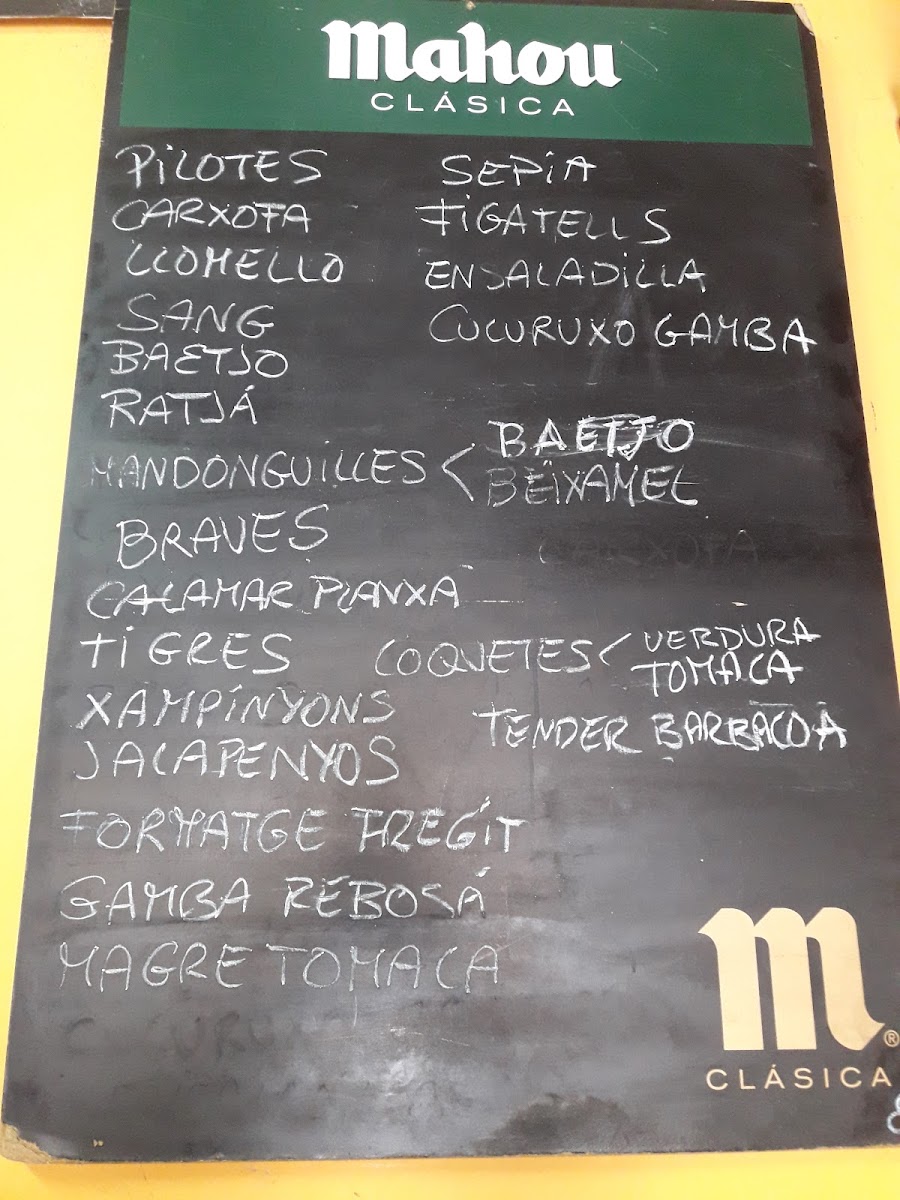 mahou
CLÁSICA
PILOTES
CARXOFA
LLOMELLO
SANG
BAETJO
RATJÁ
MANDONGUILLES < BAETJO
BEIXAMEL
BRAVES
CALAMAR PLANXA
TIGRES
XAMPINYONS
JALAPENYOS
FORMATGE FREGIT
GAMBA REBOSÁ
MAGRE TOMACA
SEPIA
FIGATELLS
ENSALADILLA
CUCURUXO GAMBA
CARXOFA
COQUETES < VERDURA
TOMACA
TENDER BARBACOA
m®
CLÁSICA